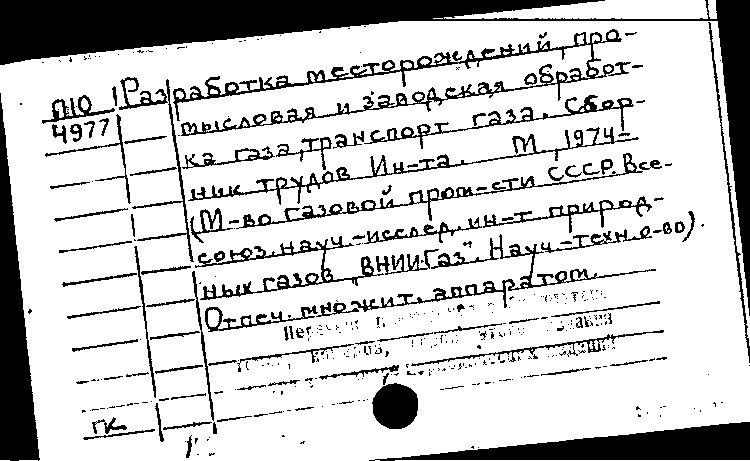 П10 Разработка месторождений, про-
4977 мысловая и заводская обработ-
ка газа, транспорт газа. Сбор-
ник трудов Ин-та. М, 1974-
(М-во газовой пром-сти СССР. Все-
союз. науч.-исслед. ин-т природ-
ных газов "ВНИИГаз". Науч.-техн. о-во).
Отпеч. множит. аппаратом.
этого издания
изданий
ГК.